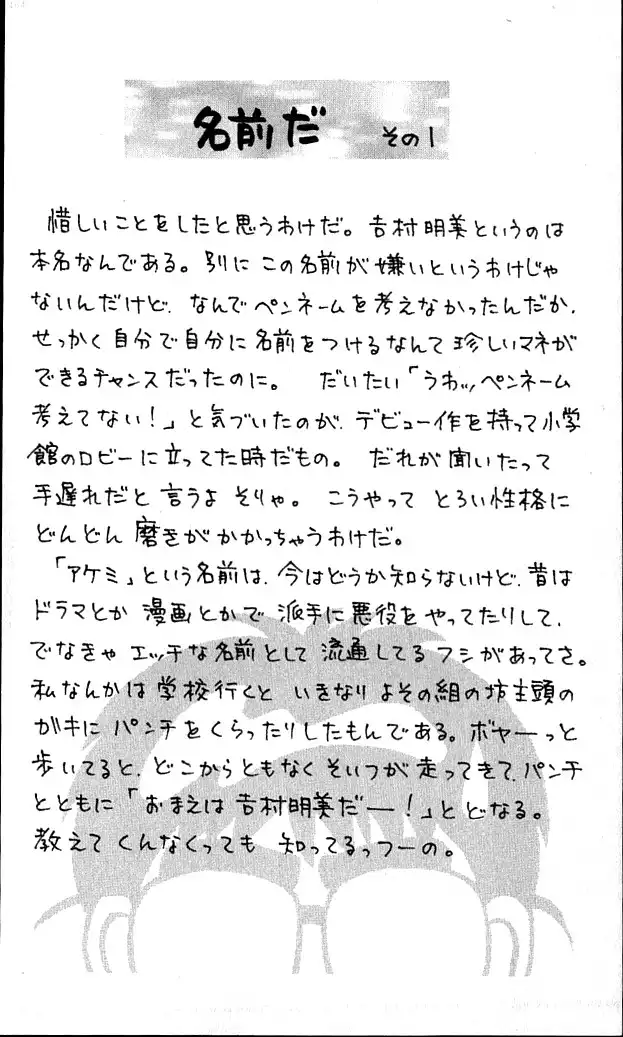 名前だ その1
惜しいことをしたと思うわけだ。吉村明美というのは
本名なんである。別にこの名前が嫌いというわけじゃ
ないんだけど、なんでペンネームを考えなかったんだか、
せっかく自分で自分に名前をつけるなんて珍しいマネが
できるチャンスだったのに。 だいたい「うわっ、ペンネーム
考えてない!」と気づいたのが、デビュー作を持って小学
館のロビーに立ってた時だもの。 だれが聞いたって
手遅れだと言うよ そりゃ。 こうやって とろい性格に
どんどん磨きがかかっちゃうわけだ。
「アケミ」という名前は、今はどうか知らないけど、昔は
ドラマとか漫画とかで派手に悪役をやってたりして、
でなきゃエッチな名前として流通してるフシがあってさ。
私なんかは学校行くと いきなりよその組の坊主頭の
ガキにパンチをくらったりしたもんである。ボヤーっと
歩いてると、どこからともなくそいつが走ってきて、パンチ
とともに「おまえは吉村明美だー!」とどなる。
教えてくんなくっても 知ってるっつーの。